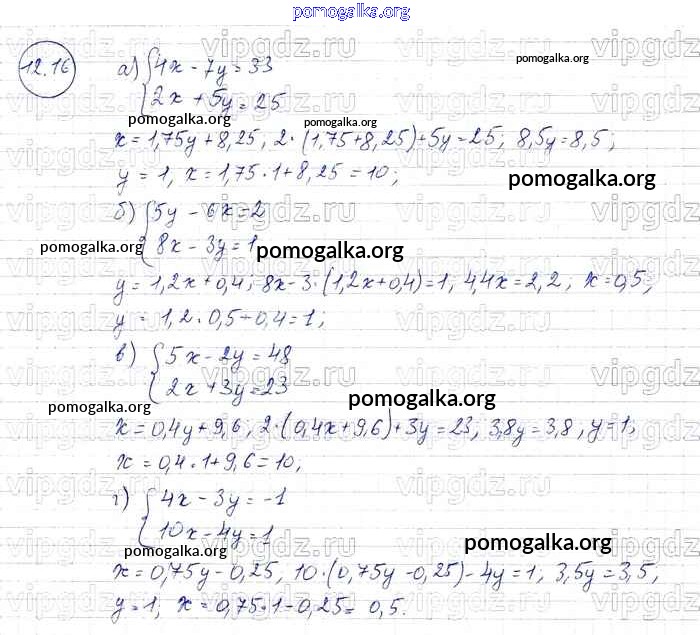 pomogalka.org
12.16
а) {4x - 7y = 33
{2x + 5y = 25
pomogalka.org
pomogalka.org
x = 1,75y + 8,25, 2·(1,75+8,25)+5y=25; 8,5y=8,5;
y = 1, x = 1,75·1+8,25 = 10;
pomogalka.org
б) {5y - 6x = 2
{8x - 3y = 1
pomogalka.org
pomogalka.org
y = 1,2x + 0,4; 8x - 3·(1,2x+0,4)=1, 4,4x = 2,2; x = 0,5;
y = 1,2·0,5+0,4 = 1;
в) {5x - 2y = 48
{2x + 3y = 23
pomogalka.org
pomogalka.org
x = 0,4y + 9,6, 2·(0,4x+9,6)+3y = 23; 3,8y = 3,8, y = 1;
x = 0,4·1+9,6 = 10;
г) {4x - 3y = -1
{10x - 4y = 1
pomogalka.org
pomogalka.org
x = 0,75y - 0,25, 10·(0,75y - 0,25) - 4y = 1; 3,5y = 3,5,
y = 1; x = 0,75·1 - 0,25 = 0,5.
vipgdz.ru